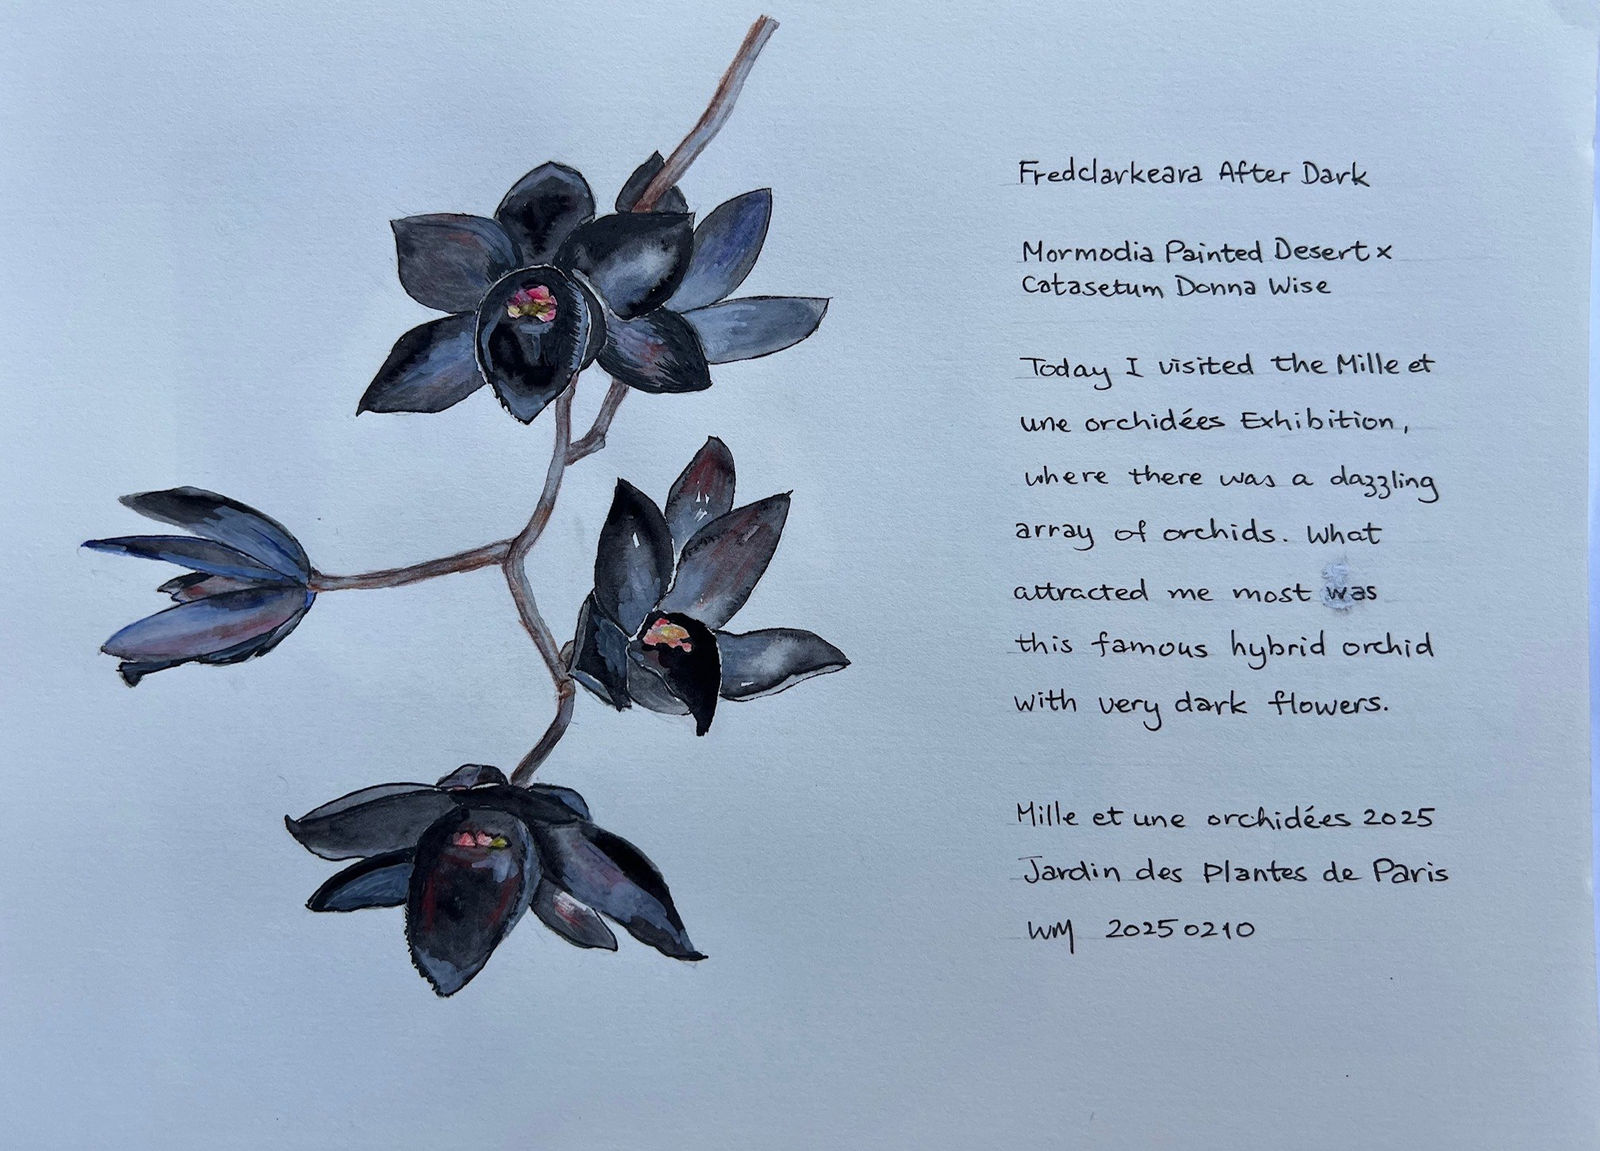 Fredclarkeara After Dark
Mormodia Painted Desert x
Catasetum Donna Wise
Today I visited the Mille et
une orchidées Exhibition,
where there was a dazzling
array of orchids. What
attracted me most was
this famous hybrid orchid
with very dark flowers.
Mille et une orchidées 2025
Jardin des Plantes de Paris
WM 20250210